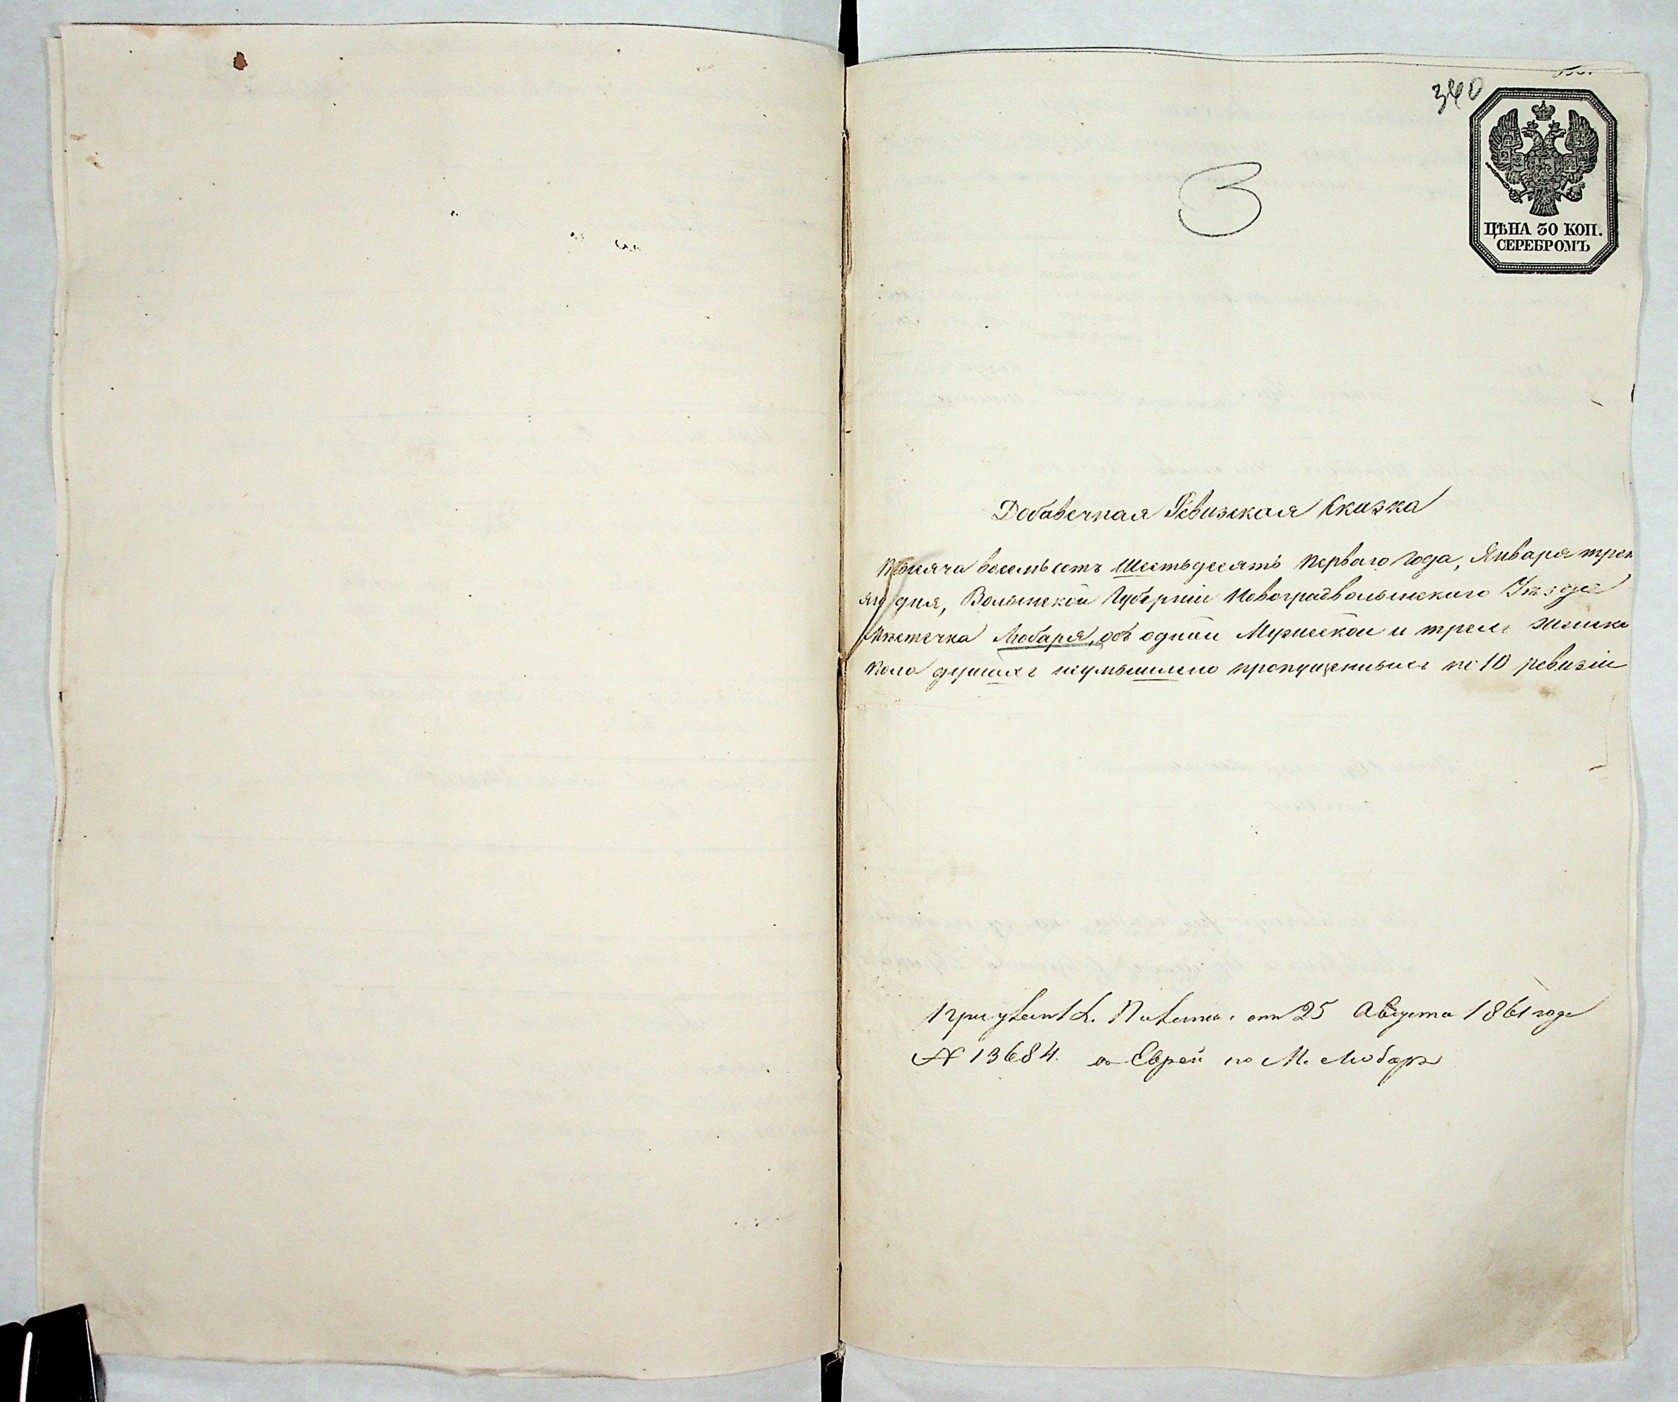 340
3
ЦѢНА 30 КОП.
СЕРЕБРОМЪ
Добавочная Ревизская Сказка
Тысяча восемьсотъ Шестьдесятъ перваго года, Января трет
яго дня, Волынской Губерніи Новоградволынскаго Уѣзда
Мѣстечка Любаря, объ одной Мужеской и трехъ женска
пола душахъ неумышленно пропущенныхъ по 10 ревизіи
от 25 Августа 1861 года
№ 13684. о Еврей по М. Любару